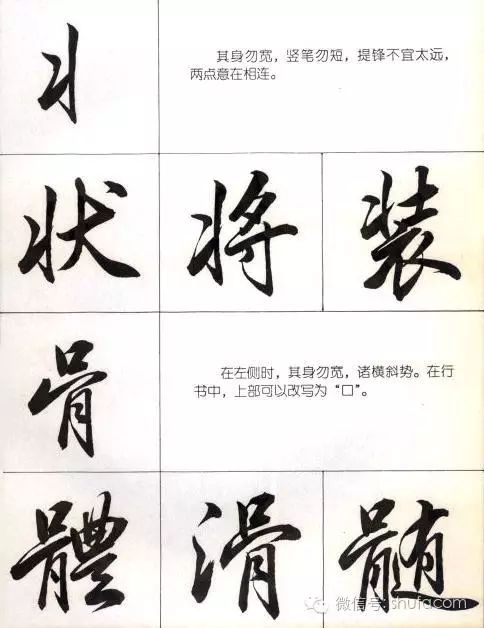 丬
其身勿宽，竖笔勿短，提锋不宜太远，
两点意在相连。
状 将 装
骨
在左侧时，其身勿宽，诸横斜势。在行
书中，上部可以改写为“口”。
體 滑 髓
微信号: shufacom